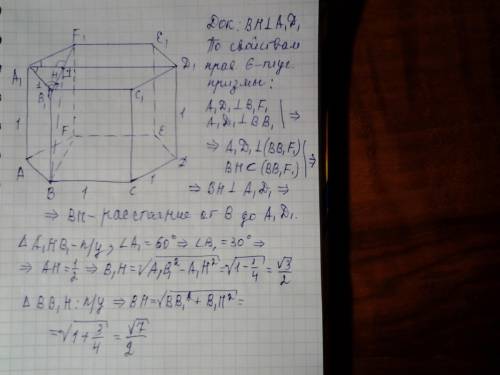 F₁
E₁
A₁
H
1
D₁
B₁
C₁
1
1
F
E
A
D
B
1
C
1
Док: BH⊥A₁D₁
По свойствам
прав 6-пуг.
призмы:
A₁D₁⊥B₁F₁ | ⇒
A₁D₁⊥BB₁ |
⇒ A₁D₁⊥(BB₁F₁) | ⇒
BH⊂(BB₁F₁) |
⇒ BH⊥A₁D₁ ⇒
⇒ BH - расстояние от B до A₁D₁.
△A₁HB₁ - п/у, ∠A₁=60° ⇒ ∠B₁=30° ⇒
⇒ AH=1/2 ⇒ B₁H=√(A₁B₁²-A₁H²)=√(1-1/4)=√3/2
△BB₁H: п/у ⇒ BH=√(BB₁²+B₁H²)=
=√(1+3/4)=√7/2